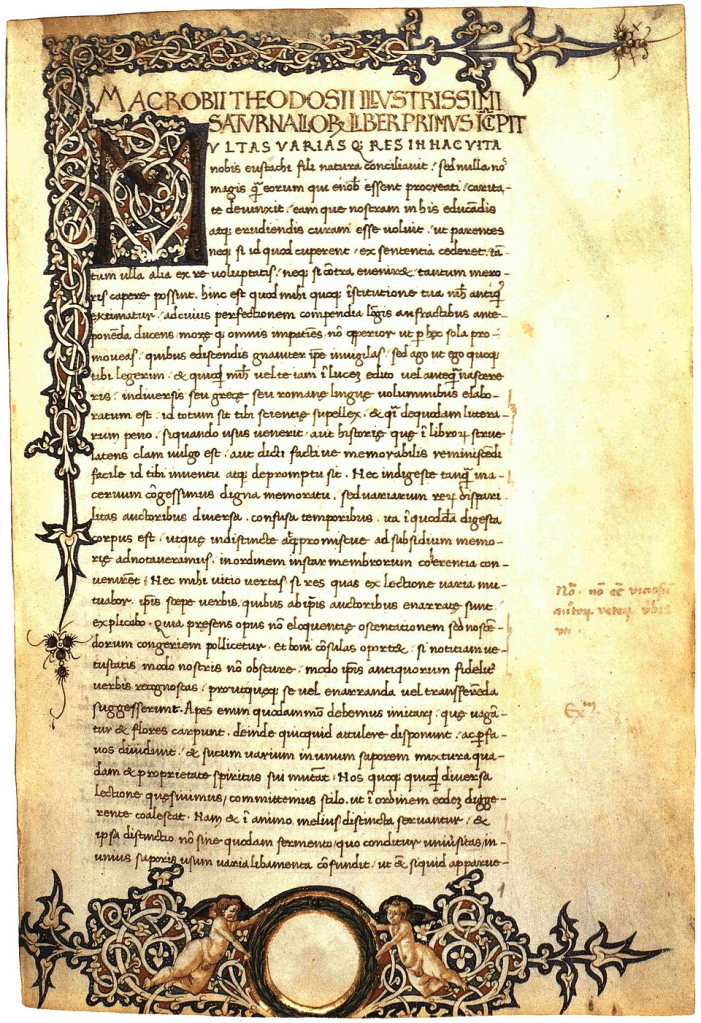 MACROBII THEODOSII ILLVSTRISSIMI
SATVRNALIOR LIBER PRIMVS ICIPIT
MVLTAS VARIASQ; RES IN HAC VITA
nobis eustachi fili natura conciliauit: sed nulla nō
magis q̄ eorum qui enob essent procreati carita-
te deuinxit: eamque nostram in his educādis
atq; erudiendis curam esse uoluit. ut parentes
neq; si id quod cuperent ex sententia cederet. tā-
tum ulla alia ex re uoluptatis: neq; si cōtra eueniret: tantum mero-
ris capere possint. hinc est quod mihi quoq; īstitutione tua nih̄ antiq;
extimatur: ad cuius perfectionem compendia lōgis anfractibus ante-
ponēda ducens: moreq; omnis impatiēs: nō opperior ut p hęc sola pro-
moueas: quibus ediscendis gnauiter ipe inuigilas: sed ago ut ego quoq;
tibi legerim. & quicq; mih̄ uel te iam ī lucez edito uel anteq̄ nascere
ris: in diuersis seu gręcę seu romanę linguę uoluminibus elabo-
ratum est: id totum sit tibi scientię supellex. & q̄si de quodam litera-
rum peno: siquando usus uenerit: aut historię quę ī libror strue
latens clam uulgo est: aut dicti factiue memorabilis reminiscēdi
facile id tibi inuentu atq; depromptu sit. Nec indigeste tanq̄ in a-
ceruum cōgessimus digna memoratu. sed uariarum rer dispari-
litas auctoribus diuersa. confusa temporibus. ita ī quoddā digesta
corpus est: utque indistincte atq; promiscue ad subsidium memo-
rię adnotaueramus: in ordinem instar membrorum coherentia con-
uenirēt: Nec mihi uitio uertas: si res quas ex lectione uaria mu-
tuabor. ipīs sœpe uerbis. quibus ab ipīs auctoribus enarratę sunt:
explicabo. Quia presens opus nō eloquentię ostentacionem sed noscē-
dorum congeriem pollicetur. et boni cōsulas oportet: si notitiam ue-
tustatis modo nostris nō obscure: modo ipīs antiquorum fidelit
uerbis recognoscas: prout quęq; se uel enarranda uel transferēda
suggesserint. Apes enim quodammō debemus imitari: quę uagā-
tur & flores carpunt. deinde quicquid attulere disponunt: ac p fa-
uos diuidunt. & sucum uarium in unum saporem mixtura qua-
dam & proprietate spiritus sui mutāt. Nos quoq; quicq; diuersa
lectione quęsiuimus: committemus stilo. ut ī ordinem eodez dige-
rente coalescat. Nam & ī animo melius distincta seruantur. &
ipsa distinctio nō sine quodam fermento: quo conditur uniuersitas: in
unius saporis usum uaria libamenta cōfundit. ut & siquid apparue-